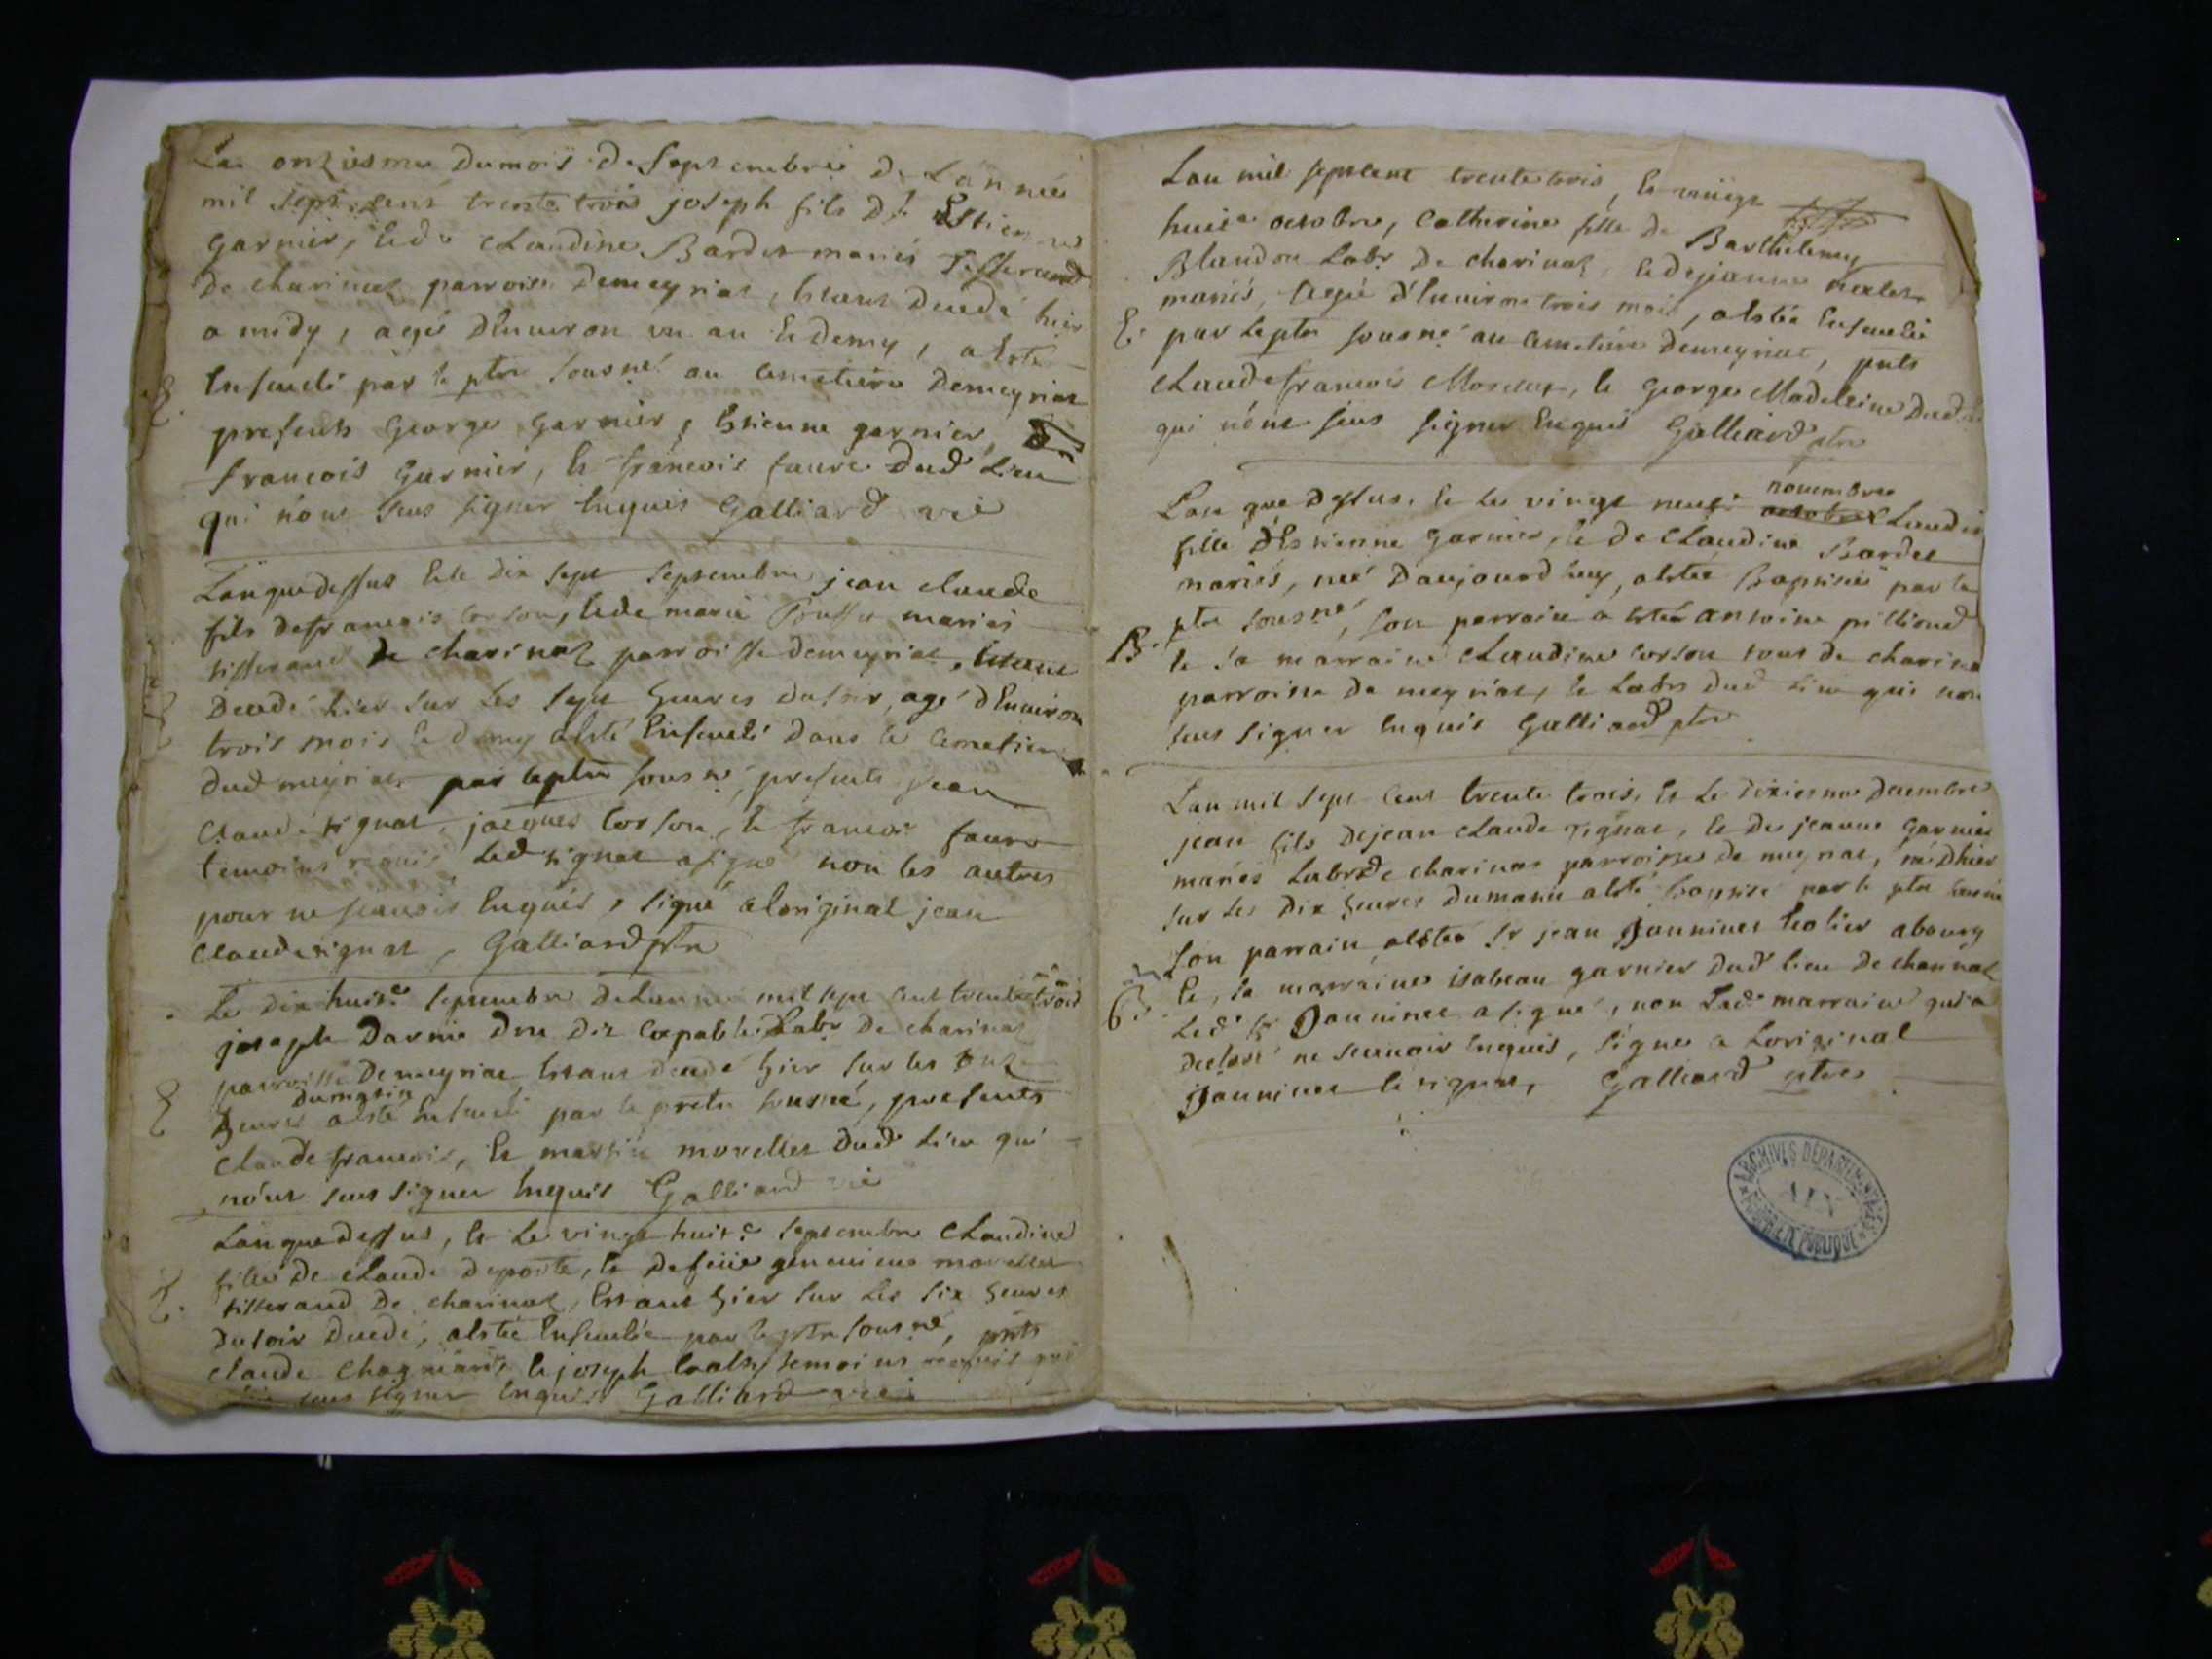 Le onziesme du mois de septembre de Lannée
mil sept cent trente trois joseph fils d'Estienne
garnier, et de Claudine Bardet mariés Tisserand
de charinaz parroisse de meyriat, estant decedé hier
a midy, agé d'environ un an et demy, a esté
Enseveli par le ptre sousné au cimetiere de meyriat
presents George garnier, Estienne garnier,
françois garnier, et françois faure dud Lieu
qui n'ont sceu signer Enquis Galliard vic
E.
L'an que dessus et le dix sept septembre jean claude
fils de françois corson, et de marie mariés
tisserand de charinaz parroisse de meyriat, estant
decedé hier sur les sept heures du soir, agé d'Environ
trois mois et demy a esté Enseveli dans le cimetiere
dud meyriat par le ptre sousné, presents jean
claude signat, jacques corson, et françois faure
temoins requis, Led signat a signé non les autres
pour ne sçavois Enquis, signé a loriginal jean
claude signat, Galliard ptre
Le dix huit.e septembre de Lannée mil sept cent trente trois
joseph Darnie dne dit Labr de charinaz
parroisse de meyriat, Estant decedé hier sur les onze
heures du matin a esté Enseveli par le pretre sousné, presents
claude françois, et martin morellet dud Lieu qui
n'ont sceu signer Enquis Galliard vic
E
Lan que dessus, et Le vingt huit.e septembre Claudine
fille de claude deporte, et de feüe genevieve morellet
tisserand de charinaz, Estant hier sur les six heures
du soir decedé, a esté Ensevelie par le ptre sousné, pnts
claude Chagniard, et joseph temoins requis qui
sceu signer Enquis Galliard vic
E.
Lan mil sept cent trente trois, le vingt
huit.e octobre, Catherine fille de Barthelemy
Blandon Labr de charinaz, et de jeanne
mariés, agée d'Environ trois mois, a esté Ensevelie
E. par le ptre sousné au cimetiere de meyriat, pnts
claude françois Morellet, et George Madeleine dud
qui n'ont sceu signer Enquis Galliard ptre
novembre
Lan que dessus. et le vingt neuf.e octobre Claudin
fille d'Estienne garnier, et de Claudine Bardet
mariés, née d'aujourd'huy, a esté Baptisée par le
ptre sousné, son parrain a esté antoine pilliond
B. et sa marraine Claudine Corson tous de charina
parroisse de meyriat, et Labrs dud Lieu qui non
sceu signer Enquis Galliard ptre
Lan mil sept cent trente trois, et Le dixiesme decembre
jean fils de jean claude signat, et de jeanne garnier
mariés Labr de charinas parroisse de meyriat, né d'hier
sur les dix heures du matin a esté baptisé par le ptre sousné
son parrain a esté sr jean Jauninet a bourg
et, sa marraine isabeau garnier dud lieu de charinaz
B. Led sr Jauninet a signé, non Lad marraine qui a
declaré ne sçavoir Enquis, signé a Loriginal
Jauninet et signat, Galliard ptre
ARCHIVES DÉPARTEMENTALES
AIN
PUBLIQUE